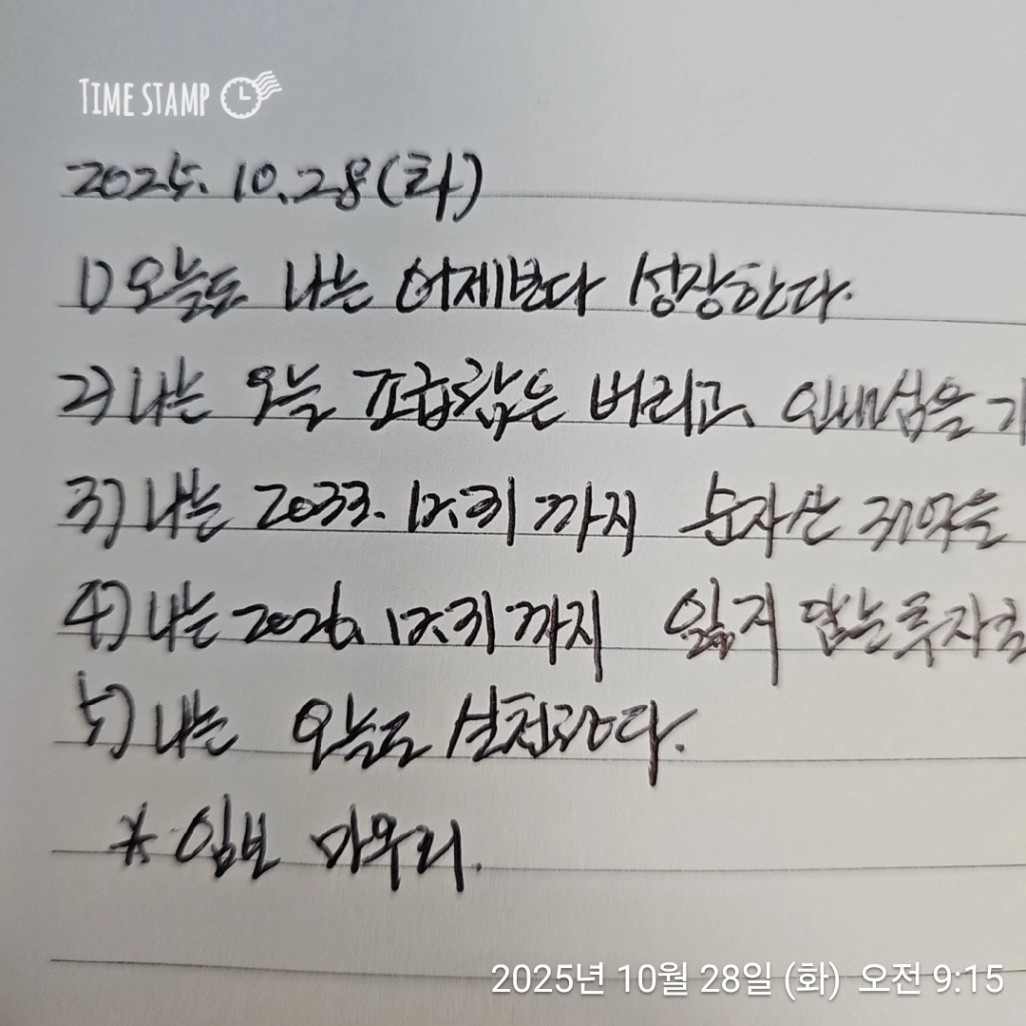 TIME STAMP
2025. 10. 28 (화)
1) 오늘도 나는 어제보다 성장한다.
2) 나는 오늘 조급함은 버리고, 인내심을
3) 나는 2033. 12. 31 까지 순자산 억을
4) 나는 2026. 12. 31 까지 잃지 않는 투자
5) 나는 오늘도 실천한다.
* 임보 마무리.
2025년 10월 28일 (화) 오전 9:15